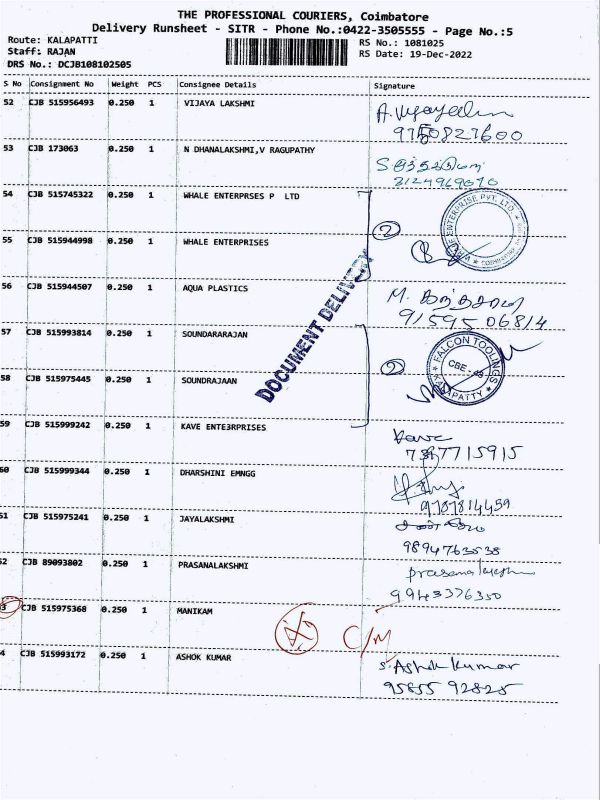 THE PROFESSIONAL COURIERS, Coimbatore
Delivery Runsheet - SITR - Phone No.:0422-3505555 - Page No.:5
Route: KALAPATTI
RS No.: 1081025
Staff: RAJAN
RS Date: 19-Dec-2022
DRS No.: DCJB108102505
S No Consignment No Weight PCS Consignee Details Signature
52 CJB 515956493 0.250 1 VIJAYA LAKSHMI
53 CJB 173063 0.250 1 N DHANALAKSHMI,V RAGUPATHY
2124969070
54 CJB 515745322 0.250 1 WHALE ENTERPRSES P LTD
2
55 CJB 515944998 0.250 1 WHALE ENTERPRISES
56 CJB 515944507 0.250 1 AQUA PLASTICS
M.
9159506814
DOCUMENT DELIVERY
57 CJB 515993814 0.250 1 SOUNDARARAJAN
FALCON TOOLINGS
CBE
KALAPATTY
2
58 CJB 515975445 0.250 1 SOUNDRAJAAN
59 CJB 515999242 0.250 1 KAVE ENTE3RPRISES
Kave
7715915
60 CJB 515999344 0.250 1 DHARSHINI EMNGG
9787814459
51 CJB 515975241 0.250 1 JAYALAKSHMI
9894763538
52 CJB 89093802 0.250 1 PRASANALAKSHMI
9943376350
3 CJB 515975368 0.250 1 MANIKAM
C/M
4 CJB 515993172 0.250 1 ASHOK KUMAR
S. Ashok Kumar
95855 92825